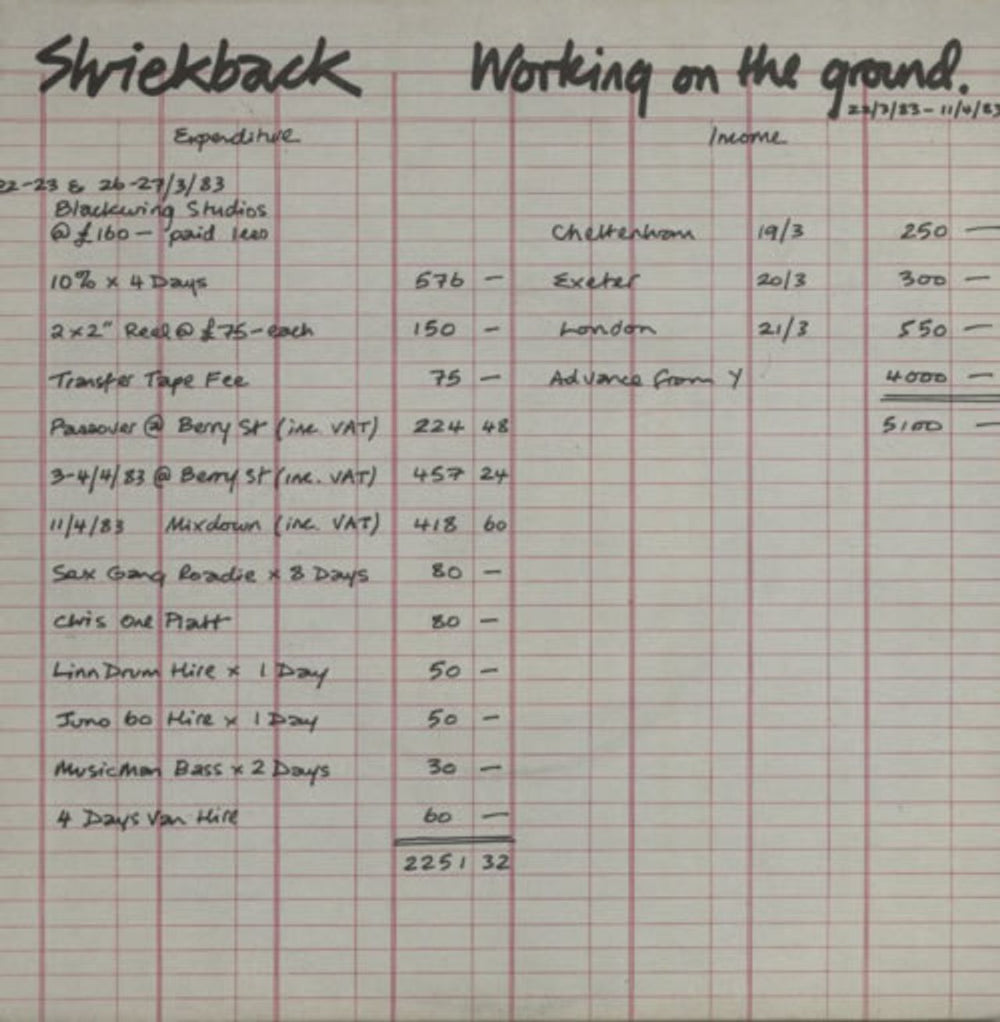 Shriekback Working on the ground.
22/3/83 - 11/4/83
Expenditure Income
22-23 & 26-27/3/83
Blackwing Studios
@ £160 - paid less Cheltenham 19/3 250 —
10% x 4 Days 576 — Exeter 20/3 300 —
2x2" Reel @ £75 - each 150 — London 21/3 550 —
Transfer Tape Fee 75 — Advance from Y 4000 —
Passover @ Berry St (inc. VAT) 224 48 5100 —
3-4/4/83 @ Berry St (inc. VAT) 457 24
11/4/83 Mixdown (inc. VAT) 418 60
Sex Gang Roadie x 8 Days 80 —
Chris One Platt 80 —
Linn Drum Hire x 1 Day 50 —
Juno 60 Hire x 1 Day 50 —
MusicMan Bass x 2 Days 30 —
4 Days Van Hire 60 —
2251 32